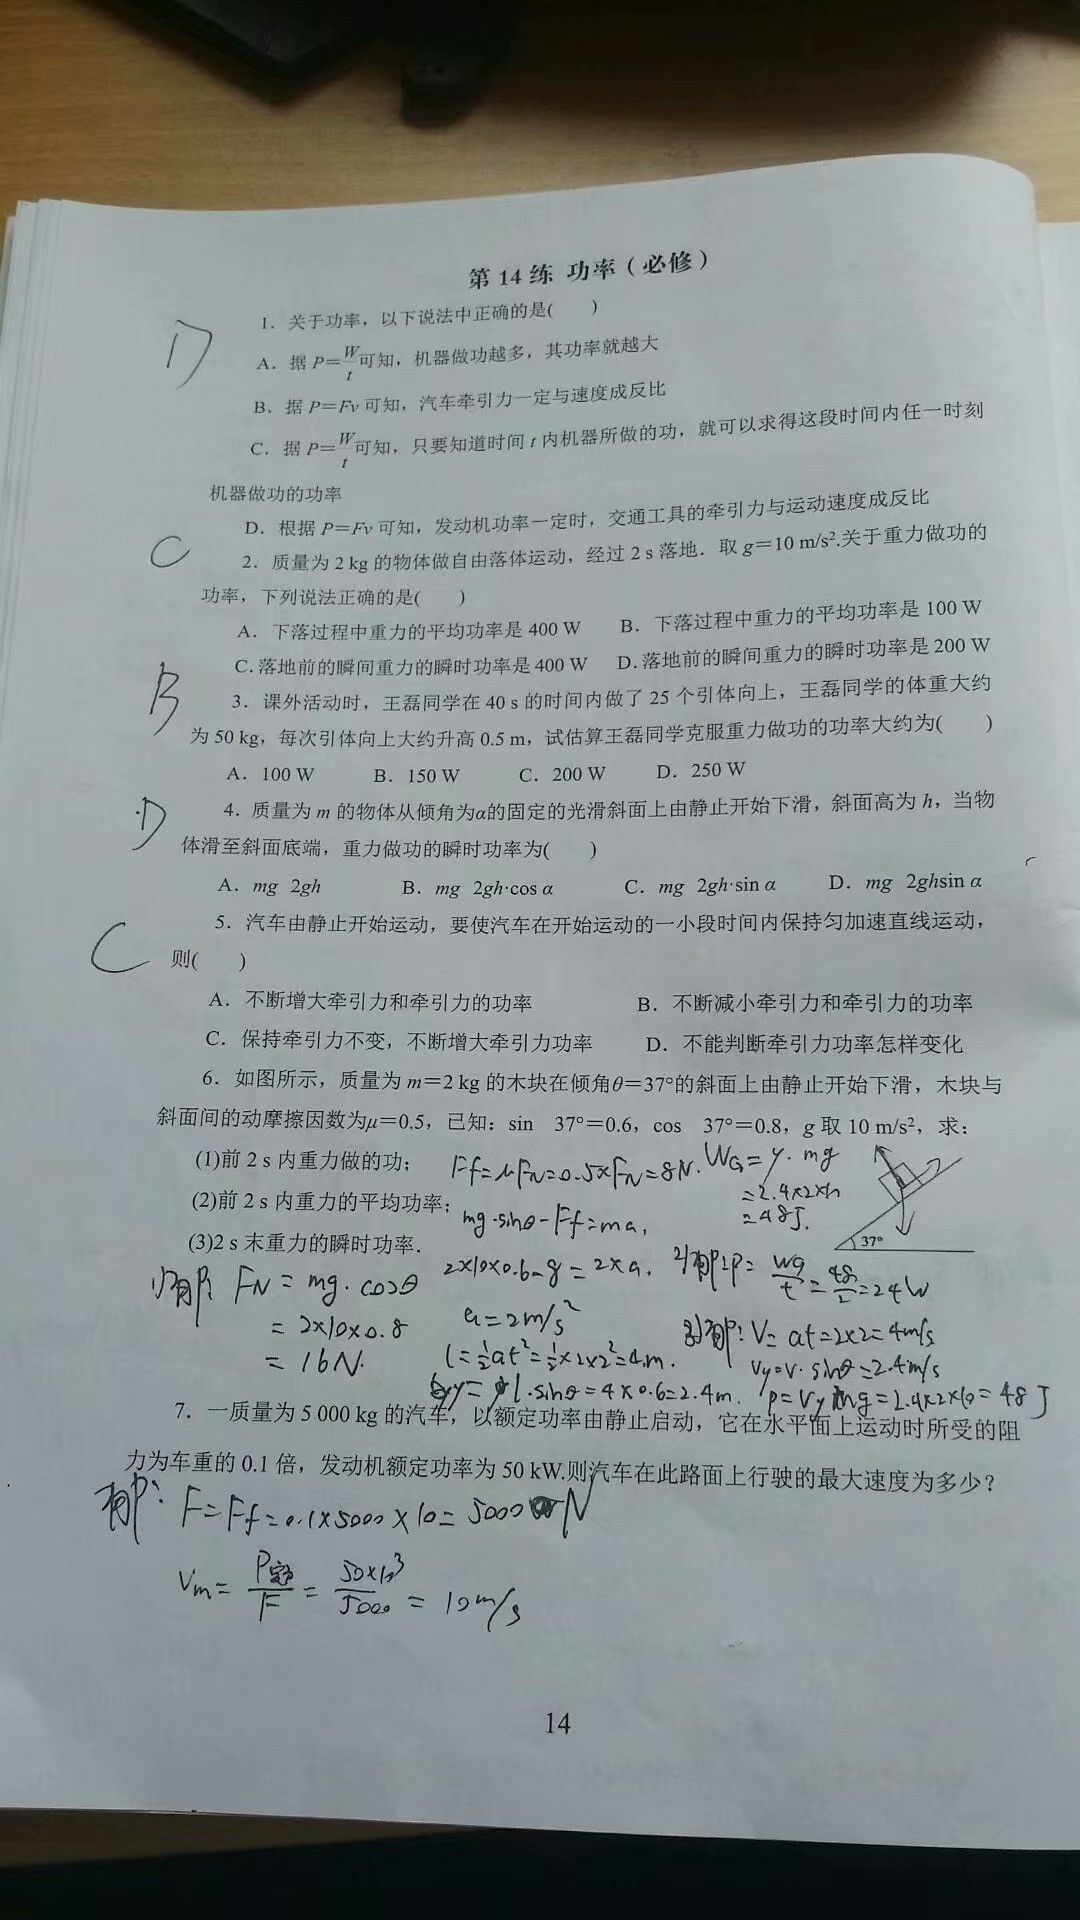 第 14 练 功率（必修）
D
1．关于功率，以下说法中正确的是(　　)
A．据 P=W/t可知，机器做功越多，其功率就越大
B．据 P=Fv 可知，汽车牵引力一定与速度成反比
C．据 P=W/t可知，只要知道时间 t 内机器所做的功，就可以求得这段时间内任一时刻
机器做功的功率
D．根据 P=Fv 可知，发动机功率一定时，交通工具的牵引力与运动速度成反比
C
2．质量为 2 kg 的物体做自由落体运动，经过 2 s 落地．取 g=10 m/s².关于重力做功的
功率，下列说法正确的是(　　)
A．下落过程中重力的平均功率是 400 W　B．下落过程中重力的平均功率是 100 W
C.落地前的瞬间重力的瞬时功率是 400 W　D.落地前的瞬间重力的瞬时功率是 200 W
B
3．课外活动时，王磊同学在 40 s 的时间内做了 25 个引体向上，王磊同学的体重大约
为 50 kg，每次引体向上大约升高 0.5 m，试估算王磊同学克服重力做功的功率大约为(　　)
A．100 W　B．150 W　C．200 W　D．250 W
D
4．质量为 m 的物体从倾角为α的固定的光滑斜面上由静止开始下滑，斜面高为 h，当物
体滑至斜面底端，重力做功的瞬时功率为(　　)
A．mg 2gh　B．mg 2gh·cos α　C．mg 2gh·sin α　D．mg 2ghsin α
C
5．汽车由静止开始运动，要使汽车在开始运动的一小段时间内保持匀加速直线运动，
则(　　)
A．不断增大牵引力和牵引力的功率　B．不断减小牵引力和牵引力的功率
C．保持牵引力不变，不断增大牵引力功率　D．不能判断牵引力功率怎样变化
6．如图所示，质量为 m=2 kg 的木块在倾角θ=37°的斜面上由静止开始下滑，木块与
斜面间的动摩擦因数为μ=0.5，已知：sin　37°=0.6，cos　37°=0.8，g 取 10 m/s²，求：
(1)前 2 s 内重力做的功；
(2)前 2 s 内重力的平均功率；
(3)2 s 末重力的瞬时功率．
37°
1)解: FN = mg·cosθ
= 2×10×0.8
= 16N.
Ff=μFN=0.5×FN=8N.
mg·sinθ-Ff=ma,
2×10×0.6-8=2×a,
a=2m/s²
l=½at²=½×2×2²=4m.
y=l·sinθ=4×0.6=2.4m.
WG=y·mg
=2.4×2×10
=48J.
2)解:P=WG/t=48/2=24W
3)解:V=at=2×2=4m/s
Vy=v·sinθ=2.4m/s
P=Vy mg=2.4×2×10=48J
7．一质量为 5 000 kg 的汽车，以额定功率由静止启动，它在水平面上运动时所受的阻
力为车重的 0.1 倍，发动机额定功率为 50 kW.则汽车在此路面上行驶的最大速度为多少？
解: F=Ff=0.1×5000×10=5000 N
Vm=P额/F=50×10³/5000=10m/s
14